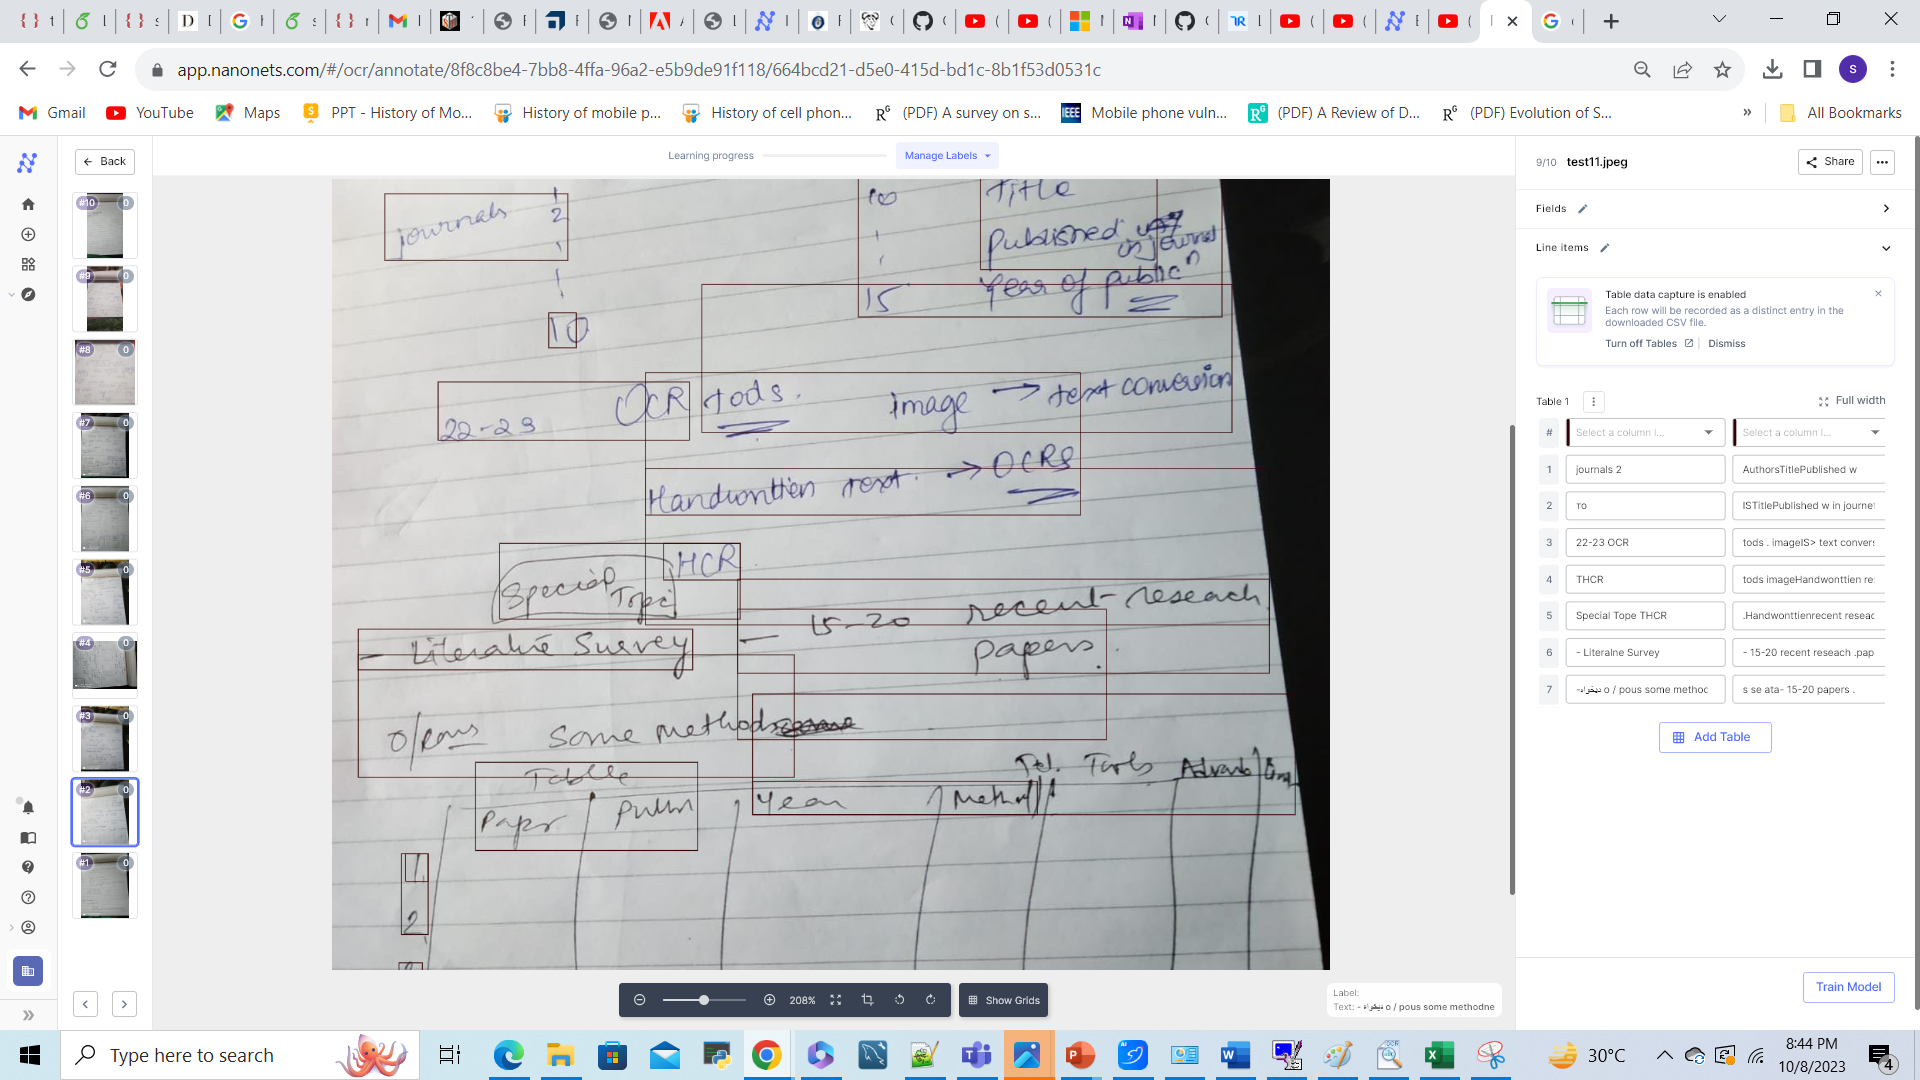 app.nanonets.com/#/ocr/annotate/8f8c8be4-7bb8-4ffa-96a2-e5b9de91f118/664bcd21-d5e0-415d-bd1c-8b1f53d0531c
Gmail YouTube Maps PPT - History of Mo... History of mobile p... History of cell phon... (PDF) A survey on s... Mobile phone vuln... (PDF) A Review of D... (PDF) Evolution of S... » All Bookmarks
Back
Learning progress Manage Labels
9/10 test11.jpeg Share
#10 0
#9 0
#8 0
#7 0
#6 0
#5 0
#4 0
#3 0
#2 0
#1 0
journals 1
2
10
10
15
Title
Published in journal
Year of public^n
22-23 OCR tods. image → text conversion
Handwonttien text. → OCRs
HCR
Special Topic
- Literatre Survey - 15-20 recent reseach
papers.
some methods
Table
Paper Publn Year Method Tools
1
2
Fields
Line items
Table data capture is enabled
Each row will be recorded as a distinct entry in the
downloaded CSV file.
Turn off Tables | Dismiss
Table 1 Full width
# Select a column l... Select a column l...
1 journals 2 AuthorsTitlePublished w
2 то ISTitlePublished w in journe
3 22-23 OCR tods . imageIS> text convers
4 THCR tods imageHandwonttien re
5 Special Tope THCR .Handwonttienrecent reseac
6 - Literalne Survey - 15-20 recent reseach .pap
7 -دیخراه o / pous some methoc s se ata- 15-20 papers .
Add Table
Train Model
208% Show Grids
Label:
Text: - دیخراه o / pous some methodne
Type here to search
30°C
8:44 PM
10/8/2023
4